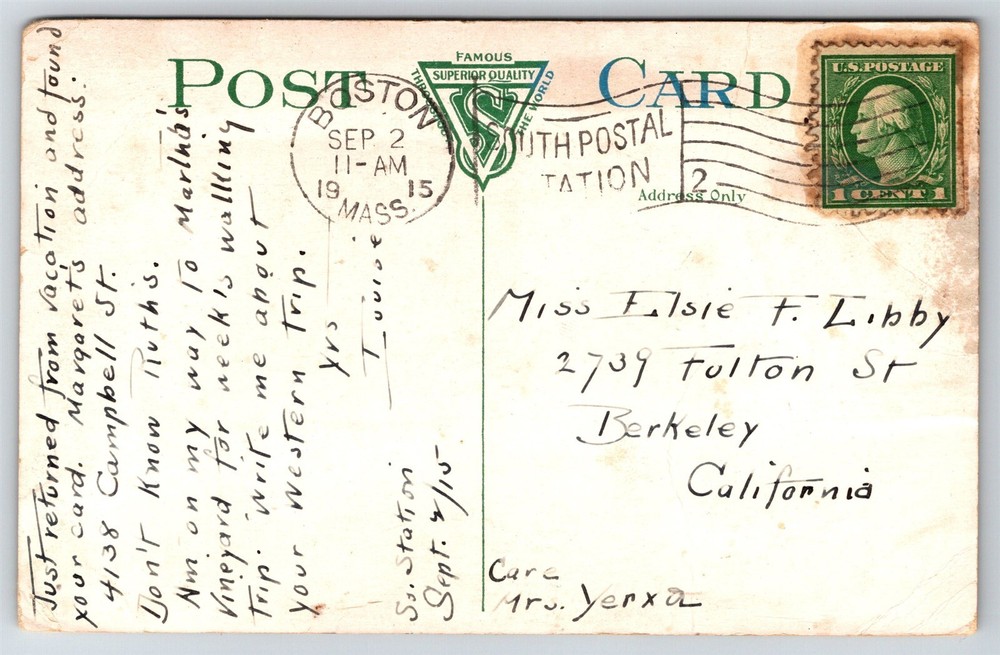 POST CARD
FAMOUS
SUPERIOR QUALITY
THROUGHOUT THE WORLD
BOSTON
SEP 2
11-AM
19 15
MASS.
SOUTH POSTAL
STATION
2
Address Only
U.S. POSTAGE
1 CENT 1
Just returned from vacation and found
your card. Margaret's address.
4138 Campbell St.
Don't know Ruth's.
Am on my way to Martha's
Vineyard for week's walking
trip. Write me about
your Western trip.
Yrs
Louise
So. Station
Sept. 2/15
Miss Elsie F. Libby
2739 Fulton St
Berkeley
California
Care
Mrs. Yerxa